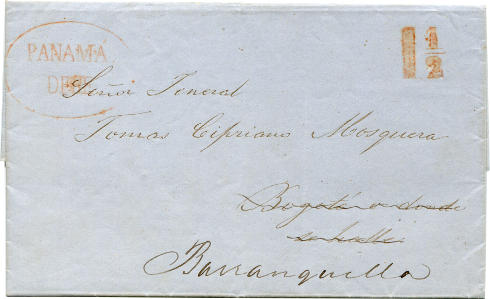 PANAMÁ
DEBE
1 1/2
Señor Jeneral
Tomas Cipriano Mosquera
Bogotá o donde
se halle
Barranquilla